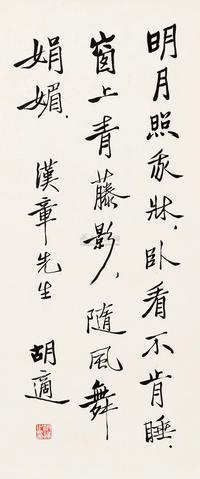 明月照我牀，卧看不肯睡．
窗上青藤影，隨風舞
娟媚．　漢章先生　胡適